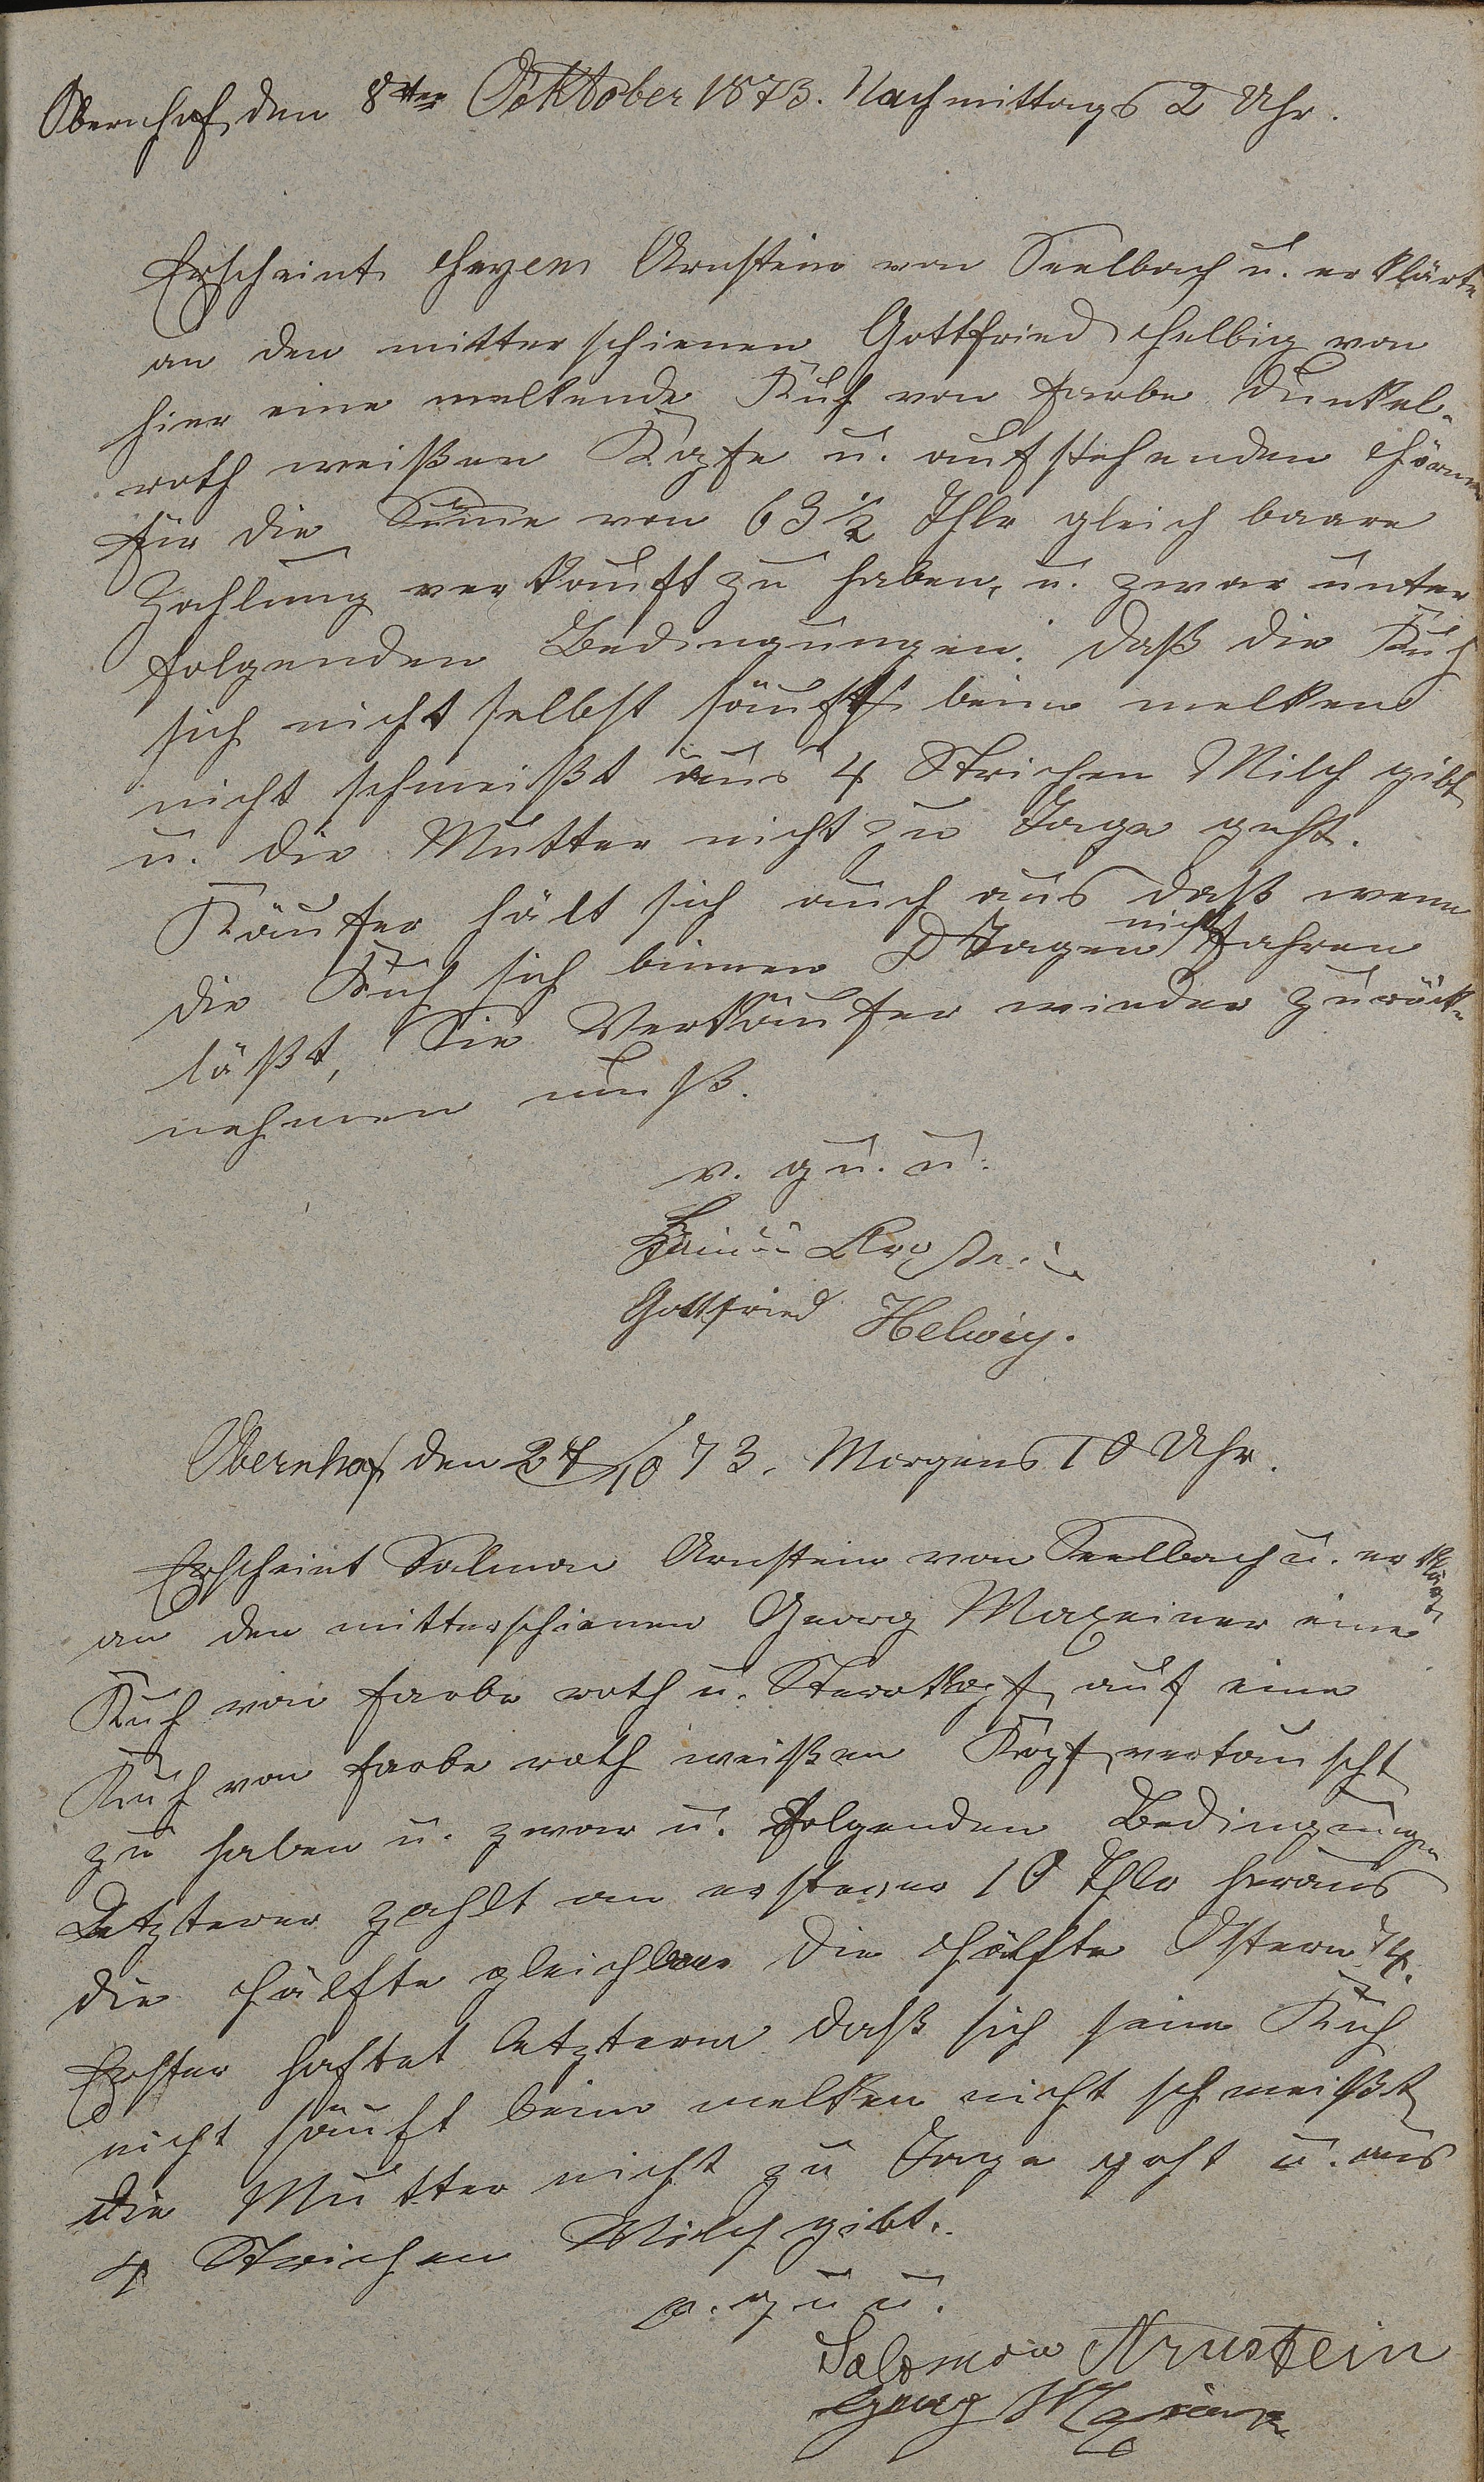 Obernhof, den 8ten Oktober 1873. Nachmittags 2 Uhr.
Erscheint Heyem Arnstein von Seelbach u. erklärte
an den mitterschienen Gottfried Helbig von
hier eine melkende Kuh von Farbe dunkel-
roth weißen Kopfe u. aufstehenden Hörnern
für die Sume von 63 1/2 Thlr gleich baare
Zahlung verkauft zu haben, u. zwar unter
folgenden Bedingungen. daß die Kuh
sich nicht selbst säuft beim melken
nicht schmeißt aus 4 Strichen Milch gibt
u. die Mutter nicht zu Tage geht.
Käufer hält sich auch aus daß wenn
die Kuh sich binnen Tagen nicht fahren
läßt, Sie Verkäufer wieder zurück-
nehmen muß.
v. g. u. u.
Arnstein
Gottfried Helwig.
Obernhof den 27/10 73. Morgens 10 Uhr.
Erscheint Salmon Arnstein von Seelbach u. erklärt
an den mitterschienen Georg Maxeiner eine
Kuh von Farbe roth u. Sternkopf auf eine
Kuh von Farbe roth weißen Kopf vertauscht
zu haben u. zwar u. folgenden Bedingungen
Letzterer zahlt an ersterer 10 Thlr heraus
die Hälfte gleichbaar die Hälfte Ostern 74.
Erster haftet letzterm daß sich seine Kuh
nicht säuft beim melken nicht schmeißt
die Mutter nicht zu Tage geht u. aus
4 Strichen Milch gibt.
v. g. u. u.
Salomon Arnstein
Georg Maxeiner